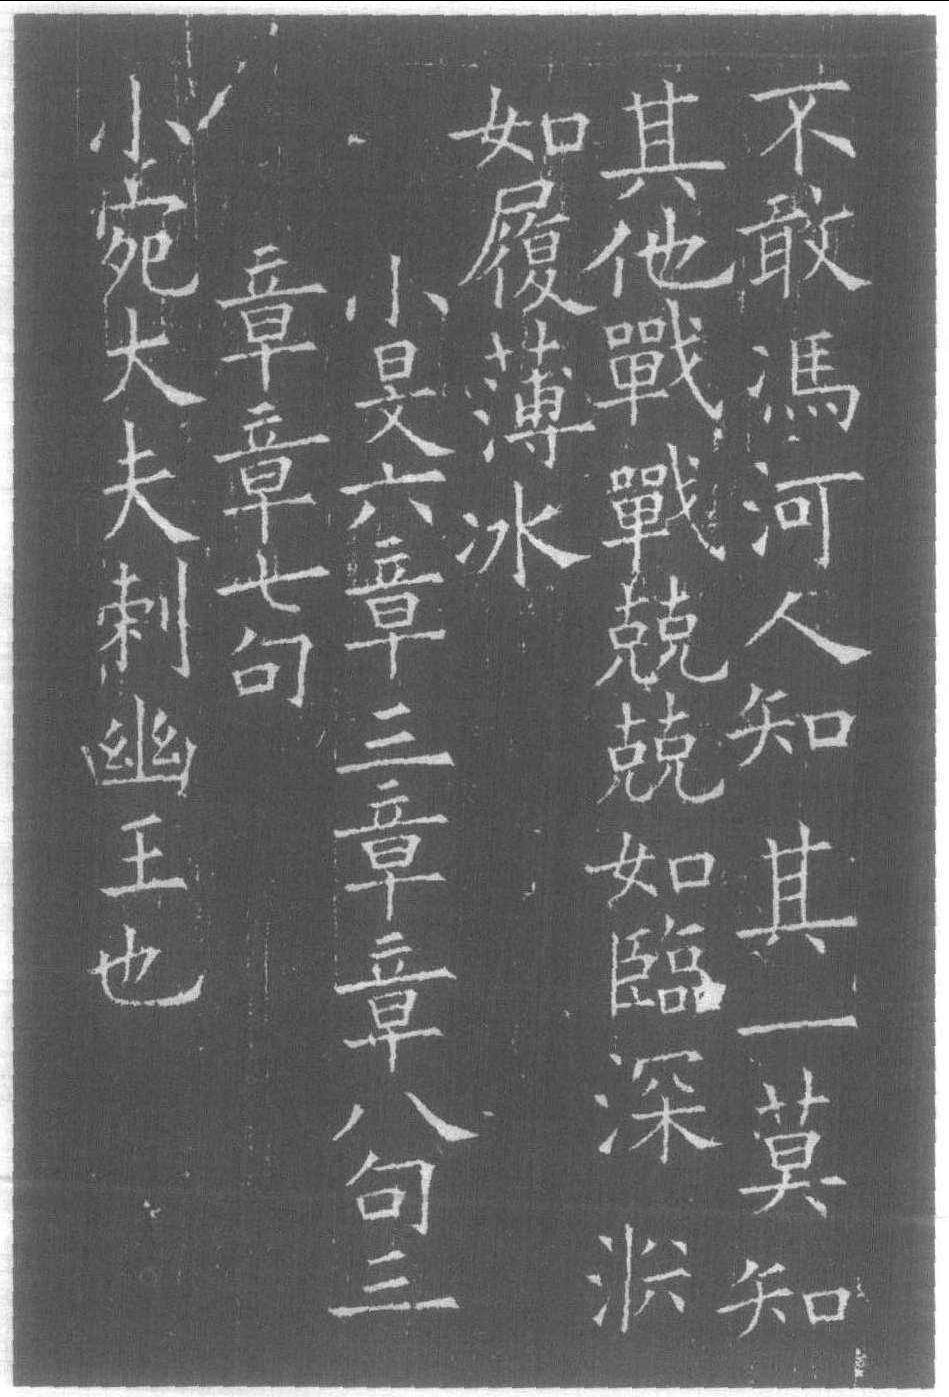 不敢馮河人知其一莫知
其他戰戰兢兢如臨深淵
如履薄冰
小旻六章三章章八句三
章章七句
小宛大夫刺幽王也